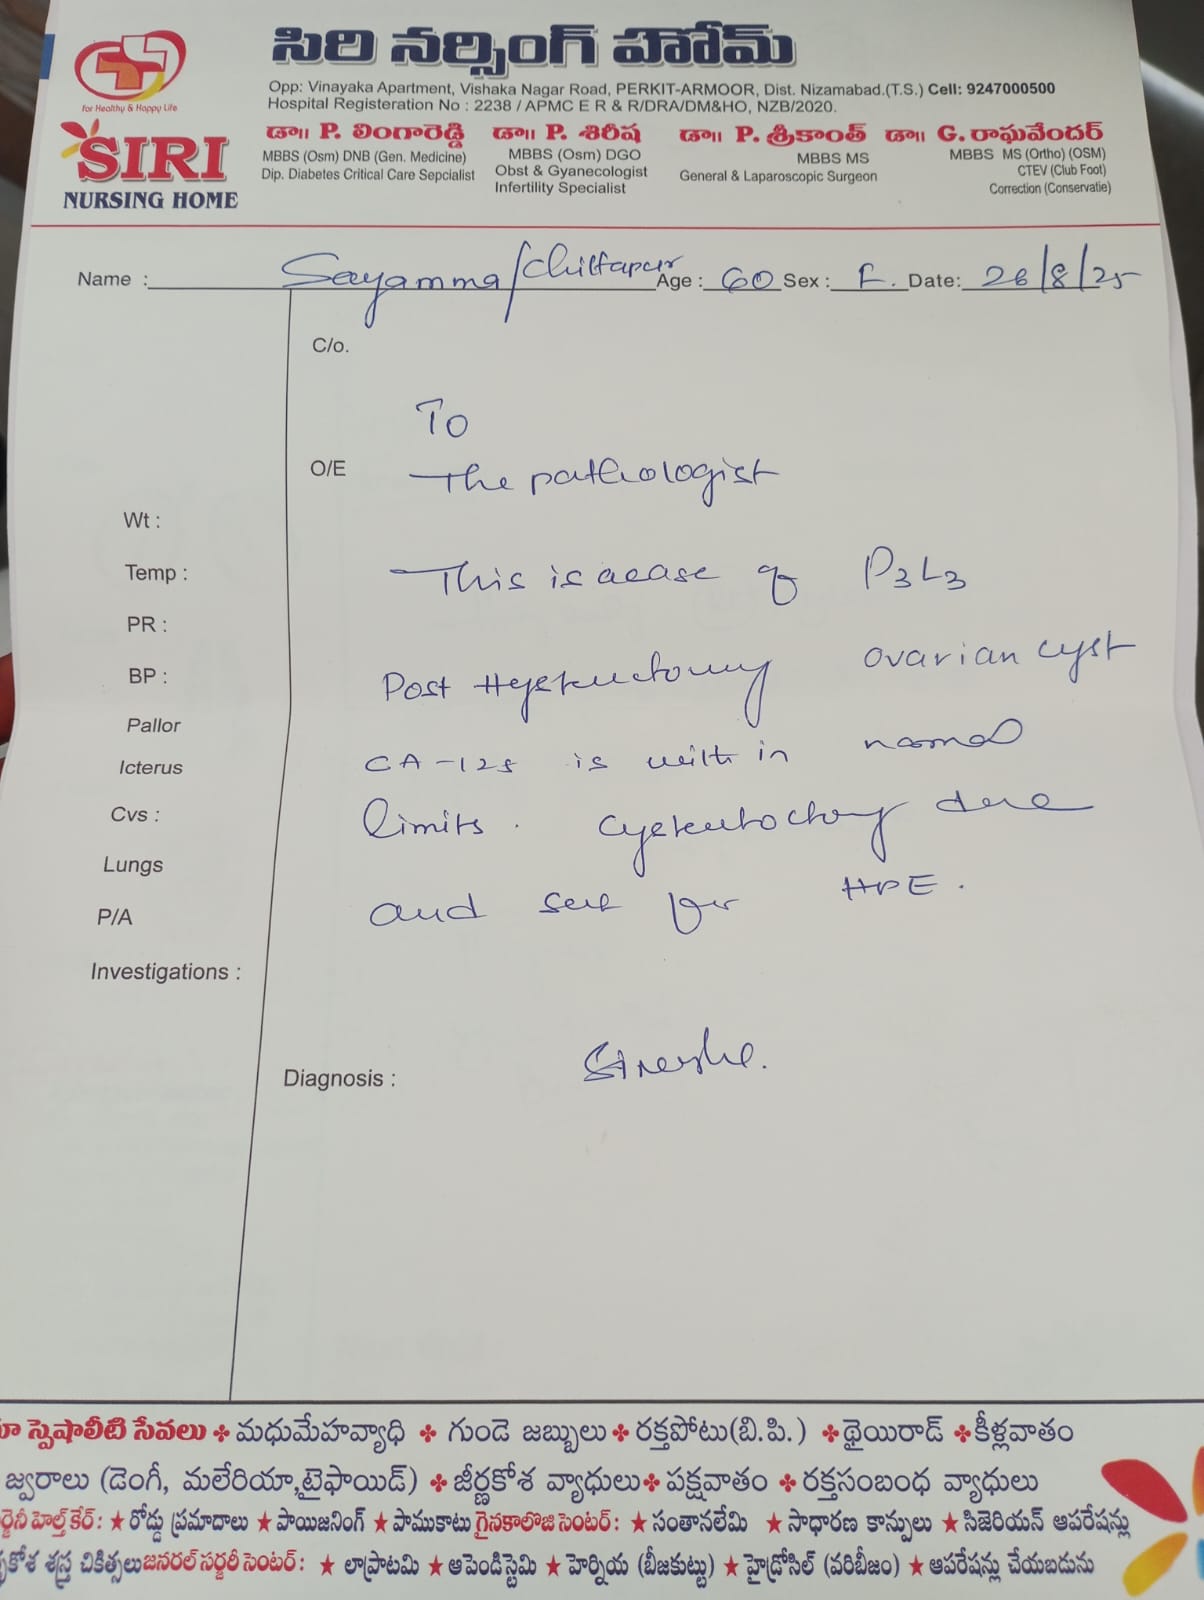 సిరి నర్సింగ్ హోమ్
for Healthy & Happy Life
SIRI
NURSING HOME
Opp: Vinayaka Apartment, Vishaka Nagar Road, PERKIT-ARMOOR, Dist. Nizamabad.(T.S.) Cell: 9247000500
Hospital Registeration No : 2238 / APMC E R & R/DRA/DM&HO, NZB/2020.
డా॥ P. లింగారెడ్డి
MBBS (Osm) DNB (Gen. Medicine)
Dip. Diabetes Critical Care Sepcialist
డా॥ P. శిరీష
MBBS (Osm) DGO
Obst & Gyanecologist
Infertility Specialist
డా॥ P. శ్రీకాంత్
MBBS MS
General & Laparoscopic Surgeon
డా॥ G. రాఘవేందర్
MBBS MS (Ortho) (OSM)
CTEV (Club Foot)
Correction (Conservatie)
Name : Sayamma/Chittapur Age : 60 Sex : F. Date: 26/8/25
C/o.
To
O/E
The pathologist
Wt :
Temp :
This is a case of P3L3
PR :
BP :
Post Hysterectomy ovarian cyst
Pallor
Icterus
CA-125 is with in normal
Cvs :
limits. done
Lungs
P/A
and sent for HPE.
Investigations :
Diagnosis :
స్పెషాలీటి సేవలు ✤ మధుమేహవ్యాధి ✤ గుండె జబ్బులు ✤ రక్తపోటు(బి.పి.) ✤ థైయిరాడ్ ✤ కీళ్లవాతం
జ్వరాలు (డెంగీ, మలేరియా,టైఫాయిడ్) ✤ జీర్ణకోశ వ్యాధులు ✤ పక్షవాతం ✤ రక్తసంబంధ వ్యాధులు
హెల్త్ కేర్: ★ రోడ్డు ప్రమాదాలు ★ పాయిజనింగ్ ★ పాముకాటు గైనకాలొజి సెంటర్: ★ సంతానలేమి ★ సాధారణ కాన్పులు ★ సిజెరియన్ ఆపరేషన్లు
శస్త్ర చికిత్సలు జనరల్ సర్జరీ సెంటర్: ★ లాప్రొటమి ★ ఆపెండిస్టెమి ★ హెర్నియ (బీజకుట్టు) ★ హైడ్రోసిల్ (వరిబీజం) ★ ఆపరేషన్లు చేయబడును